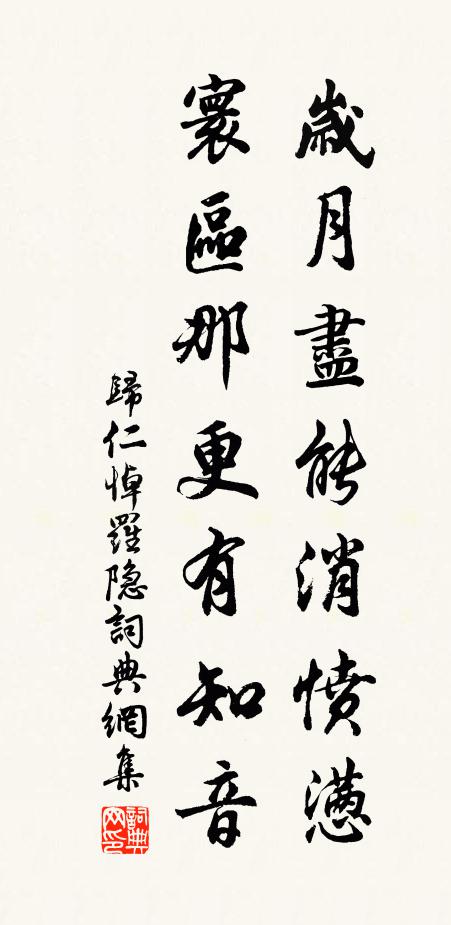 歲月盡能消憤懣
寰區那更有知音
歸仁悼羅隐詞典網集
詞典網印